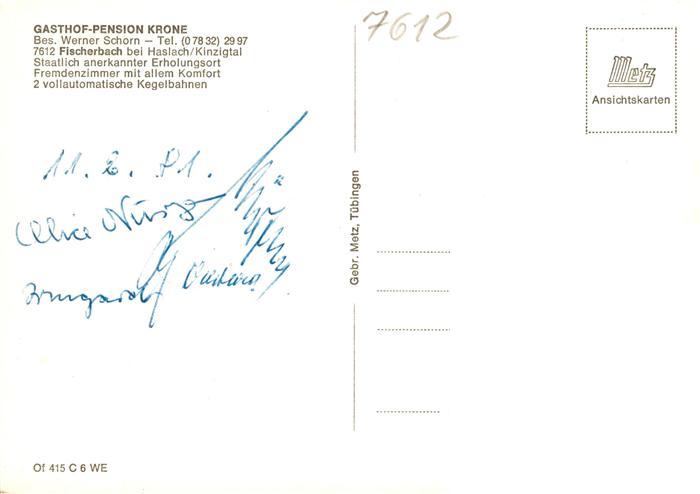 GASTHOF-PENSION KRONE
Bes. Werner Schorn – Tel. (0 78 32) 29 97
7612 Fischerbach bei Haslach/Kinzigtal
Staatlich anerkannter Erholungsort
Fremdenzimmer mit allem Komfort
2 vollautomatische Kegelbahnen
7612
Metz
Ansichtskarten
Alice
Irmgard
Barbara
Gebr. Metz, Tübingen
Of 415 C 6 WE